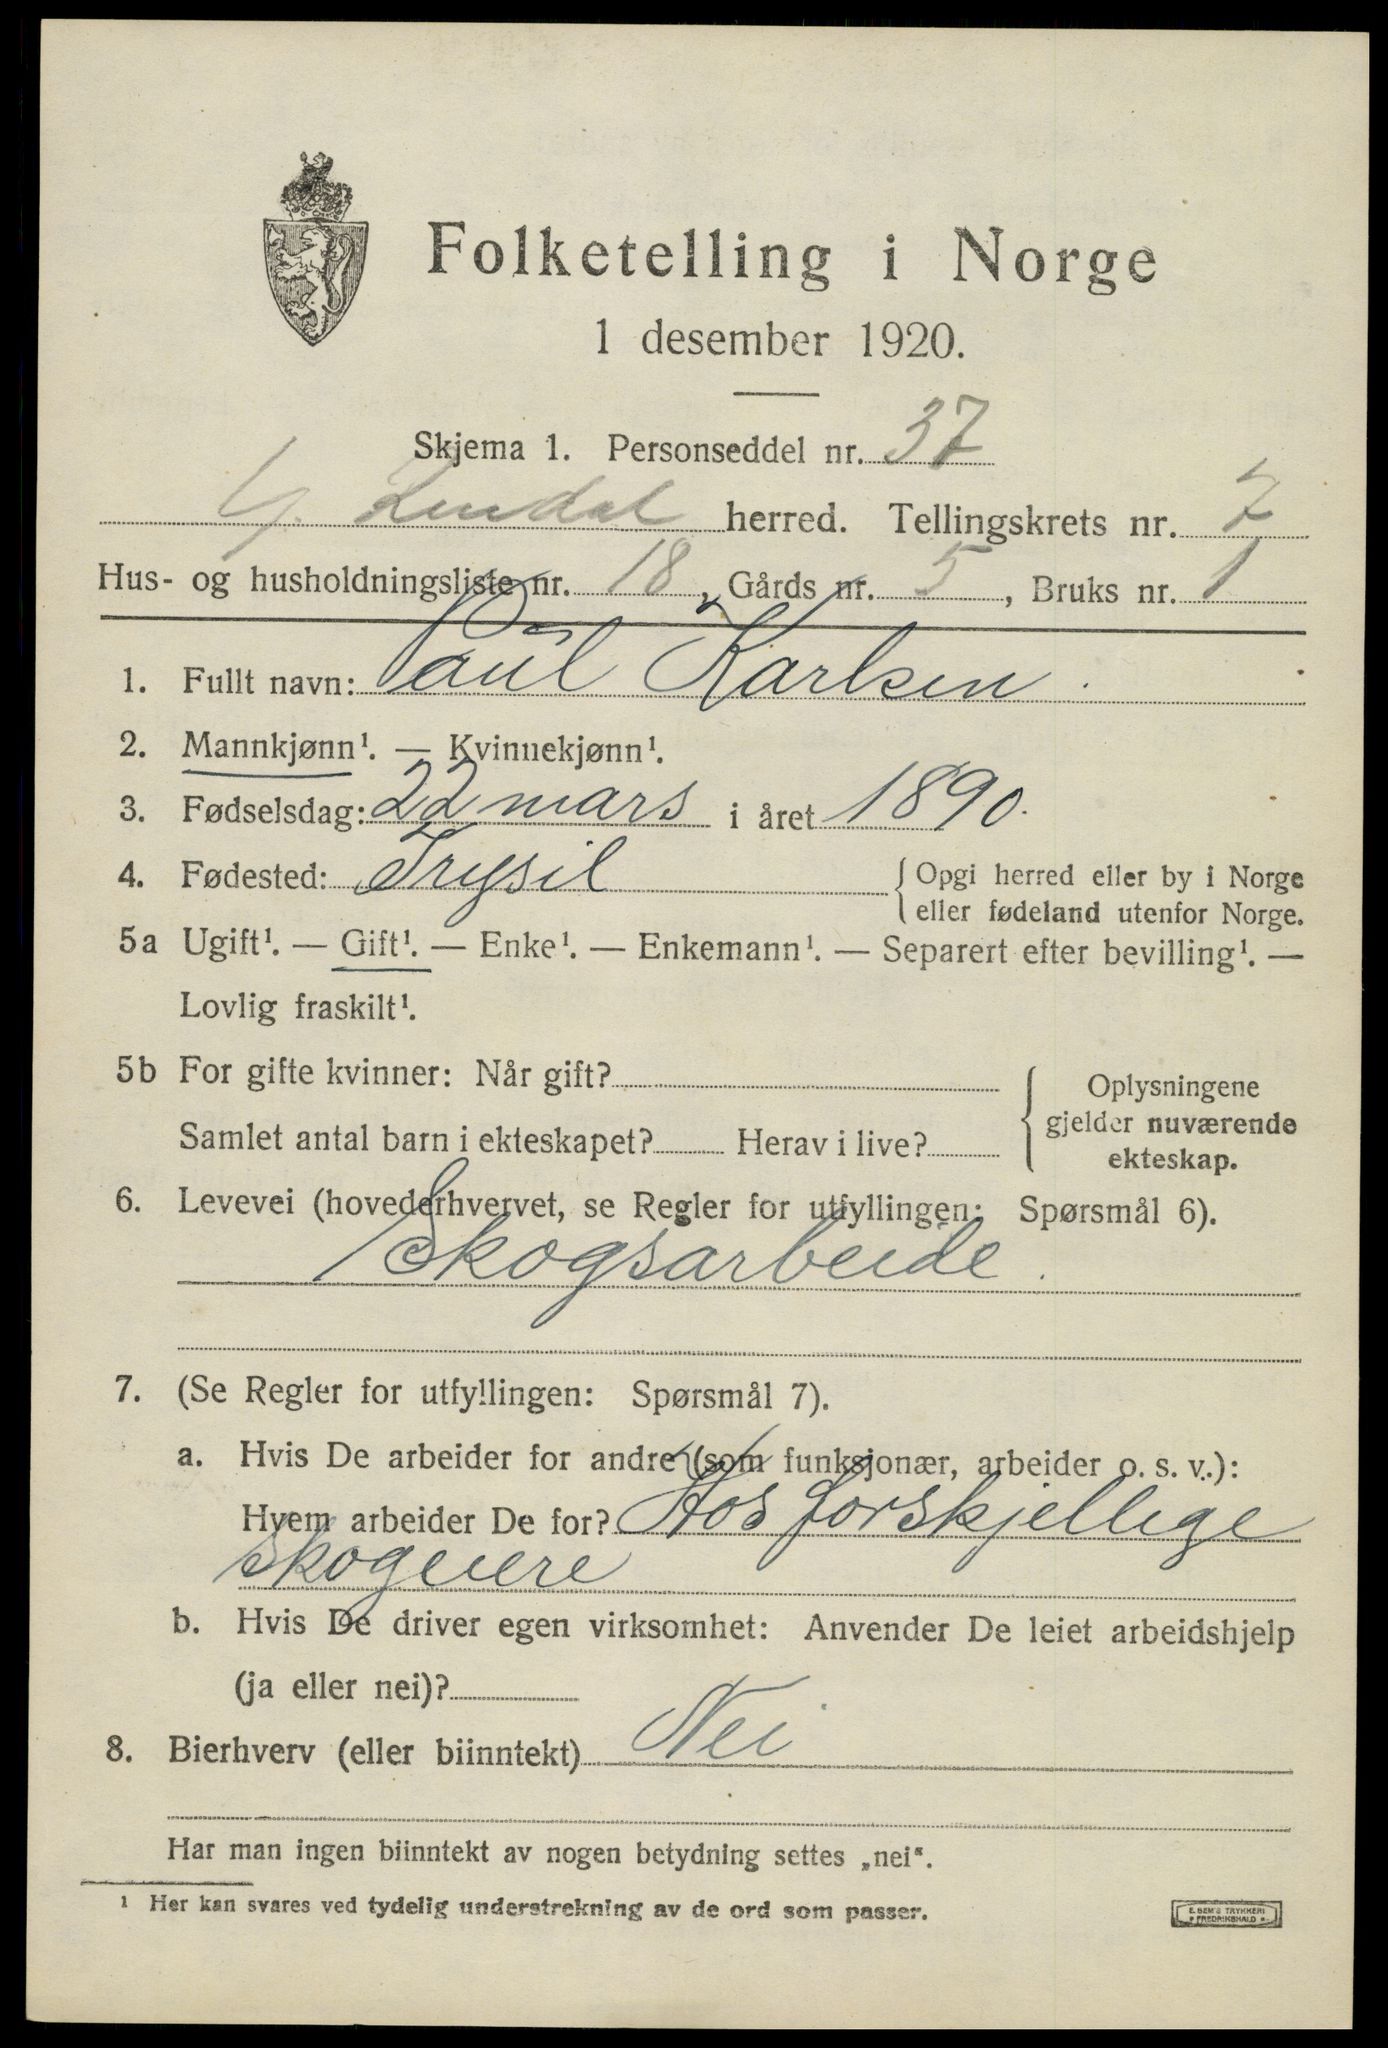 Folketelling i Norge
1 desember 1920.
Skjema 1. Personseddel nr. 37
herred. Tellingskrets nr. 7
Hus- og husholdningsliste nr. 18, Gårds nr. 5, Bruks nr. 1
1. Fullt navn: Paul Karlsen.
2. Mannkjønn¹. — Kvinnekjønn¹.
3. Fødselsdag: 22 mars i året 1890.
4. Fødested: Trysil { Opgi herred eller by i Norge
eller fødeland utenfor Norge.
5a Ugift¹. — Gift¹. — Enke¹. — Enkemann¹. — Separert efter bevilling¹. —
Lovlig fraskilt¹.
5b For gifte kvinner: Når gift?
Samlet antal barn i ekteskapet? Herav i live?
{ Oplysningene
gjelder nuværende
ekteskap.
6. Levevei (hovederhvervet, se Regler for utfyllingen: Spørsmål 6).
Skogsarbeide.
7. (Se Regler for utfyllingen: Spørsmål 7).
a. Hvis De arbeider for andre (som funksjonær, arbeider o. s. v.):
Hvem arbeider De for? Hos forskjellige
skogeiere
b. Hvis De driver egen virksomhet: Anvender De leiet arbeidshjelp
(ja eller nei)?
8. Bierhverv (eller biinntekt) Nei
Har man ingen biinntekt av nogen betydning settes „nei".
¹ Her kan svares ved tydelig understrekning av de ord som passer.
E. SEM'S TRYKKERI
FREDRIKSHALD